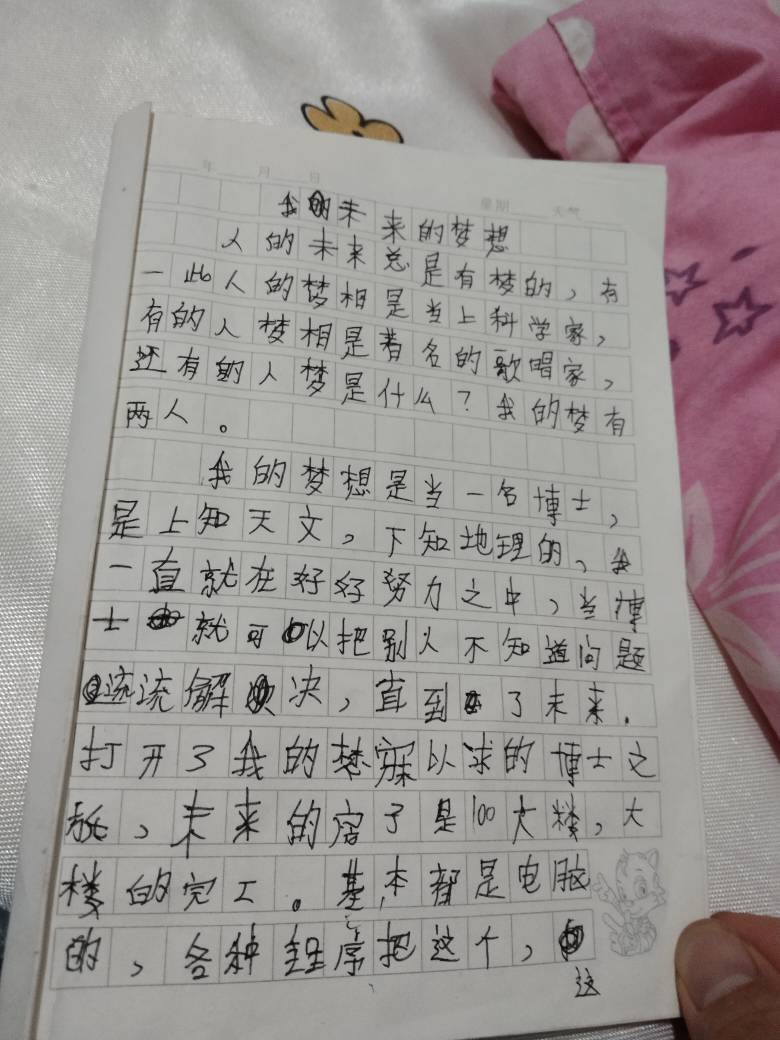 年 月 日
星期 天气
我的未来的梦想
人的未来总是有梦的，有
一此人的梦相是当上科学家，
有的人梦相是着名的歌唱家，
还有的人梦是什么？我的梦有
两人。
我的梦想是当一名博士，
是上知天文，下知地理的，我
一直就在好好努力之中，当博
士就可以把别人不知道问题
流解决，直到了未来.
打开了我的梦寐以求的博士之
，未来的房了是100大楼，大
楼的完工。基本都是电脑
的，各种程序把这个，
这